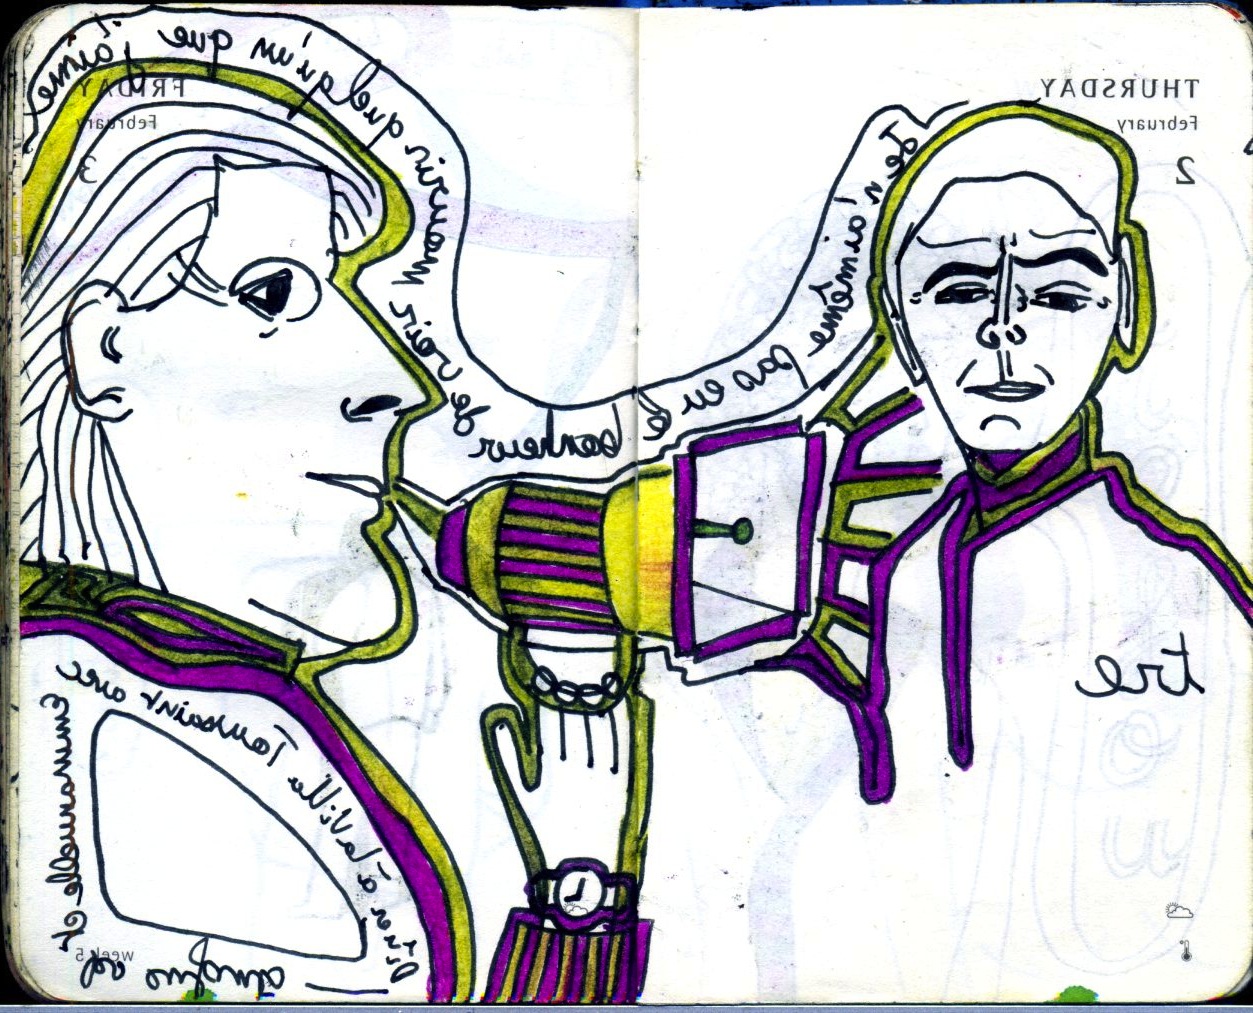 THURSDAY
February
2
FRIDAY
February
3
Je n'ai même pas eu le
bonheur
de voir
Mourir quelqu'un que j'aime
tre
Dîner à la Villa Toussaint avec
Emmanuelle et
week 5